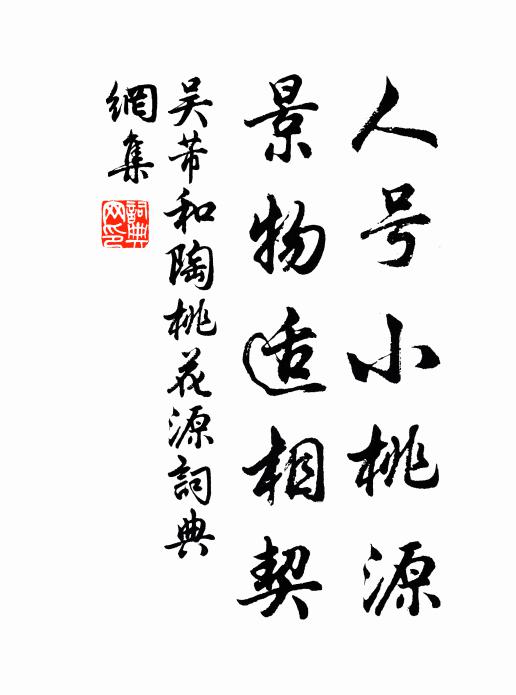 人号小桃源
景物适相契
吴芾和陶桃花源詞典
網集
詞典网印